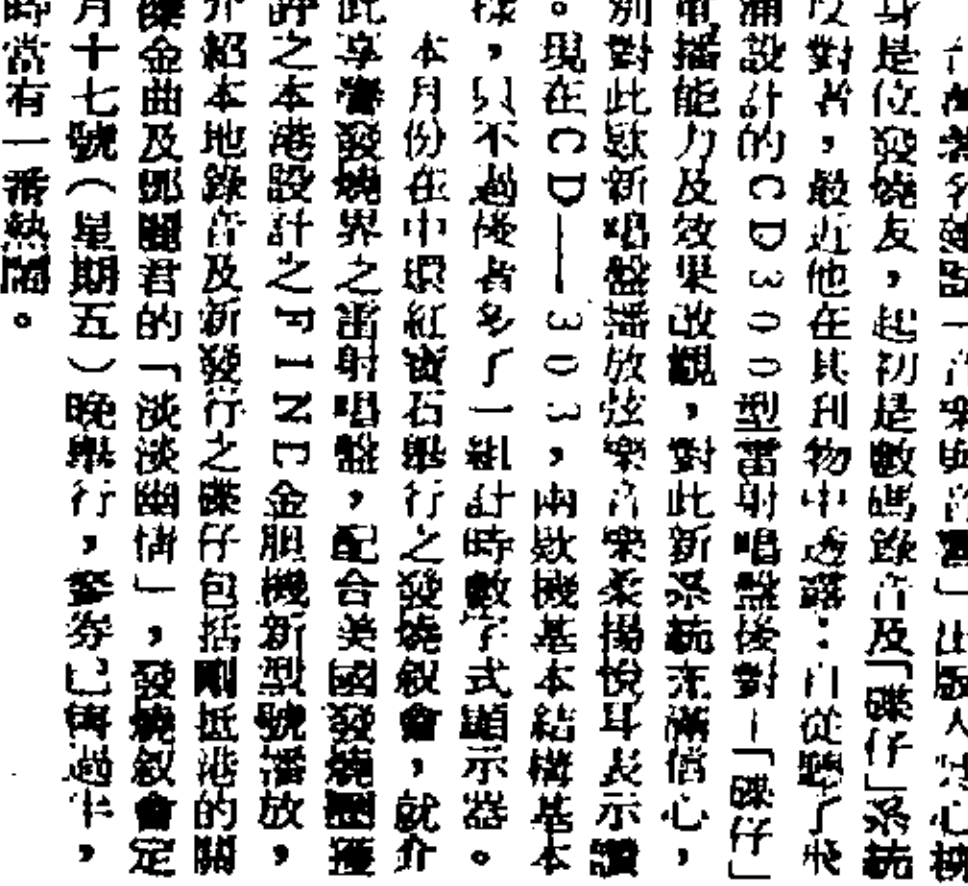 著名雜誌「音樂與音響」出版人
身是位發燒友，起初是數碼錄音及「碟仔」系統
反對者，最近他在其刊物中透露：自從聽了飛
浦設計的CD300型雷射唱盤後對「碟仔」
電播能力及效果改觀，對此新系統充滿信心，
別對此欵新唱盤播放弦樂音樂柔揚悅耳表示讚
。現在CD—303，兩欵機基本結構基本
樣，只不過後者多了一組計時數字式顯示器。
本月份在中環紅寶石舉行之發燒敍會，就介
此享譽發燒界之雷射唱盤，配合美國發燒圈獲
評之本港設計之FINE金胆機新型號播放，
介紹本地錄音及新發行之碟仔包括剛抵港的關
碟金曲及鄧麗君的「淡淡幽情」，發燒敍會定
月十七號（星期五）晚舉行，餐券已傳過半，
時當有一番熱鬧。